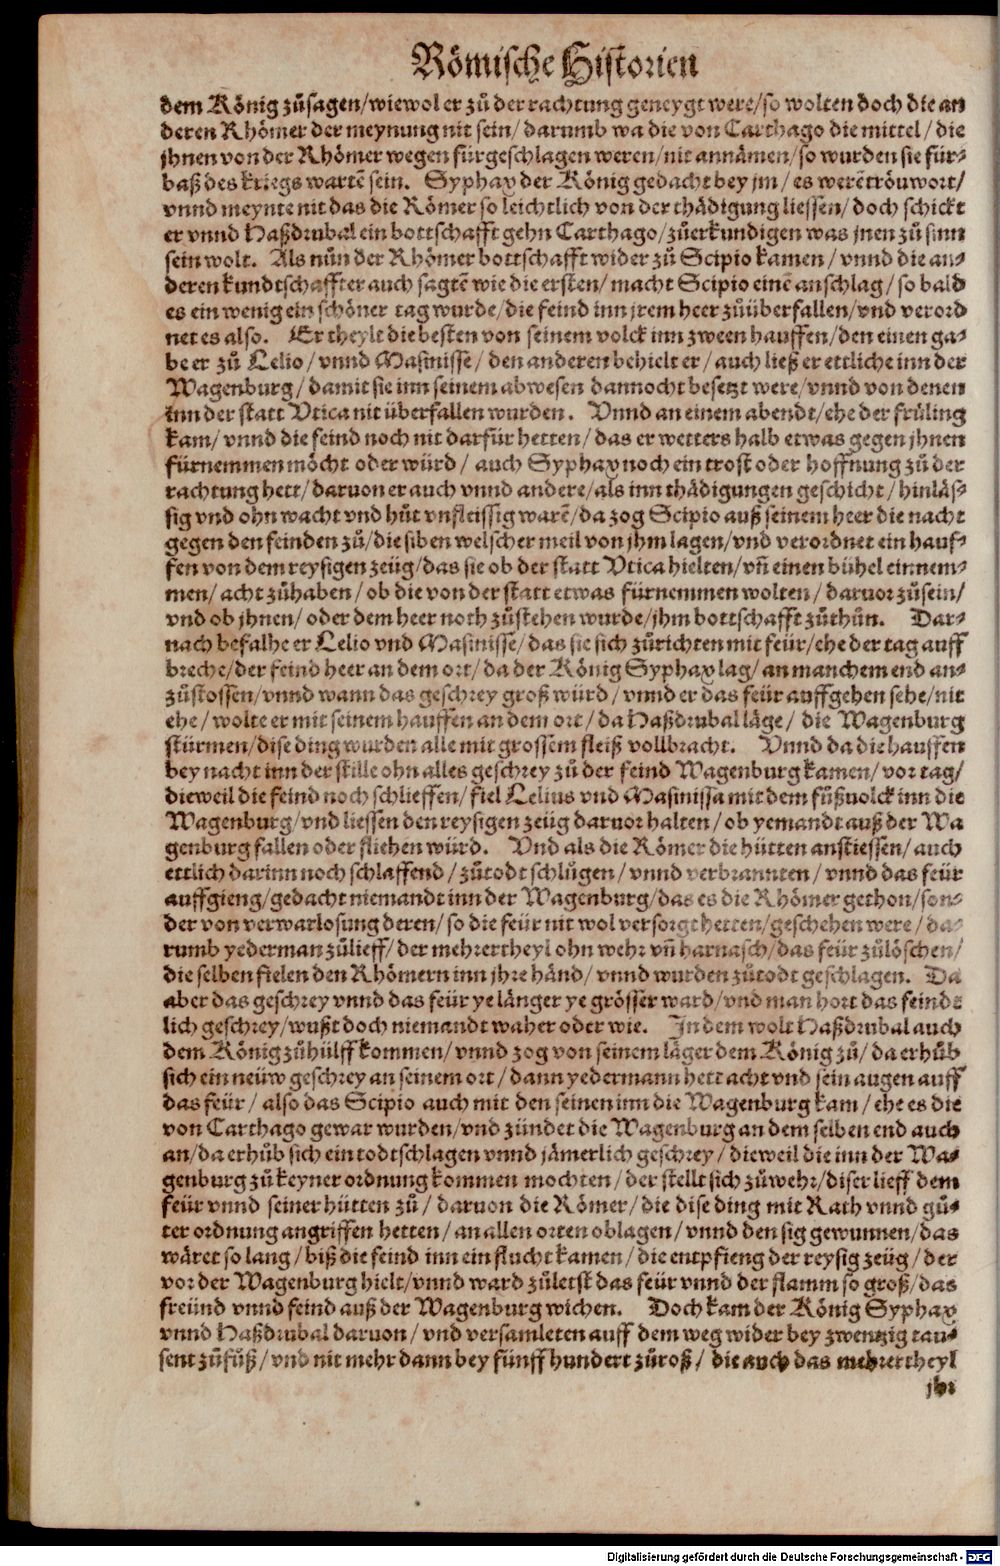 Römische Historien
dem König zůsagen/wiewol er zů der rachtung geneygt were/so wolten doch die an
deren Rhömer der meynung nit sein/ darumb wa die von Carthago die mittel/ die
jhnen von der Rhömer wegen fürgeschlagen weren/nit annämen/so wurden sie für-
baß des kriegs wartē sein. Syphax der König gedacht bey jm/ es werē tröuwort/
vnnd meynte nit das die Römer so leichtlich von der thädigung liessen/ doch schickt
er vnnd Haßdrubal ein bottschafft gehn Carthago/zůerkundigen was jnen zů sinn
sein wolt. Als nůn der Rhömer bottschafft wider zů Scipio kamen/ vnnd die an-
deren kundtschaffter auch sagtē wie die ersten/ macht Scipio einē anschlag/ so bald
es ein wenig ein schöner tag wurde/die feind inn jrem heer zůüberfallen/vnd verord
net es also. Er theylt die besten von seinem volck inn zween hauffen/den einen ga-
be er zů Lelio/ vnnd Masinisse/ den anderen behielt er/ auch ließ er ettliche inn der
Wagenburg/ damit sie inn seinem abwesen dannocht besetzt were/vnnd von denen
inn der statt Vtica nit überfallen wurden. Vnnd an einem abendt/ehe der früling
kam/ vnnd die feind noch nit darfür hetten/ das er wetters halb etwas gegen jhnen
fürnemmen möcht oder würd/ auch Syphax noch ein trost oder hoffnung zů der
rachtung hett/daruon er auch vnnd andere/als inn thädigungen geschicht/hinläs-
sig vnd ohn wacht vnd hůt vnfleissig warē/da zog Scipio auß seinem heer die nacht
gegen den feinden zů/die siben welscher meil von jhm lagen/vnd verordnet ein hauf-
fen von dem reysigen zeüg/das sie ob der statt Vtica hielten/vn̄ einen bühel einnem-
men/ acht zůhaben/ ob die von der statt etwas fürnemmen wolten/ daruor zůsein/
vnd ob jhnen/ oder dem heer noth zůstehen wurde/jhm bottschafft zůthůn. Dar-
nach befalhe er Lelio vnd Masinisse/das sie sich zůrichten mit feür/ehe der tag auff
breche/der feind heer an dem ort/da der König Syphax lag/an manchem end an-
zůstossen/vnnd wann das geschrey groß würd/ vnnd er das feür auffgehen sehe/nit
ehe/ wolte er mit seinem hauffen an dem ort/da Haßdrubal läge/ die Wagenburg
stürmen/dise ding wurden alle mit grossem fleiß vollbracht. Vnnd da die hauffen
bey nacht inn der stille ohn alles geschrey zů der feind Wagenburg kamen/ vor tag/
dieweil die feind noch schlieffen/ fiel Lelius vnd Masinissa mit dem fůßuolck inn die
Wagenburg/vnd liessen den reysigen zeüg daruor halten/ ob yemandt auß der Wa
genburg fallen oder fliehen würd. Vnd als die Römer die hütten anstiessen/ auch
ettlich darinn noch schlaffend/ zůtodt schlůgen/ vnnd verbrannten/ vnnd das feür
auffgieng/gedacht niemandt inn der Wagenburg/das es die Rhömer gethon/son-
der von verwarlosung deren/ so die feür nit wol versorgt hetten/geschehen were/ da-
rumb yederman zůlieff/ der mehrertheyl ohn wehr vn̄ harnasch/das feür zůlöschen/
die selben fielen den Rhömern inn jhre händ/ vnnd wurden zůtodt geschlagen. Da
aber das geschrey vnnd das feür ye länger ye grösser ward/vnd man hort das feindt
lich geschrey/wußt doch niemandt waher oder wie. In dem wolt Haßdrubal auch
dem König zůhülff kommen/ vnnd zog von seinem läger dem König zů/ da erhůb
sich ein neüw geschrey an seinem ort/ dann yedermann hett acht vnd sein augen auff
das feür/ also das Scipio auch mit den seinen inn die Wagenburg kam/ ehe es die
von Carthago gewar wurden/vnd zündet die Wagenburg an dem selben end auch
an/da erhůb sich ein todtschlagen vnnd jämerlich geschrey/ dieweil die inn der Wa-
genburg zů keyner ordnung kommen mochten/ der stellt sich zůwehr/diser lieff dem
feür vnnd seiner hütten zů/ daruon die Römer/ die dise ding mit Rath vnnd gů-
ter ordnung angriffen hetten/ an allen orten oblagen/ vnnd den sig gewunnen/das
wäret so lang/ biß die feind inn ein flucht kamen/ die entpfieng der reysig zeüg/ der
vor der Wagenburg hielt/vnnd ward zůletst das feür vnnd der flamm so groß/das
freünd vnnd feind auß der Wagenburg wichen. Doch kam der König Syphax
vnnd Haßdrubal daruon/ vnd versamleten auff dem weg wider bey zwentzig tau-
sent zůfůß/ vnd nit mehr dann bey fünffhundert zůroß/ die auch das mehrertheyl
jhr
Digitalisierung gefördert durch die Deutsche Forschungsgemeinschaft - DFG